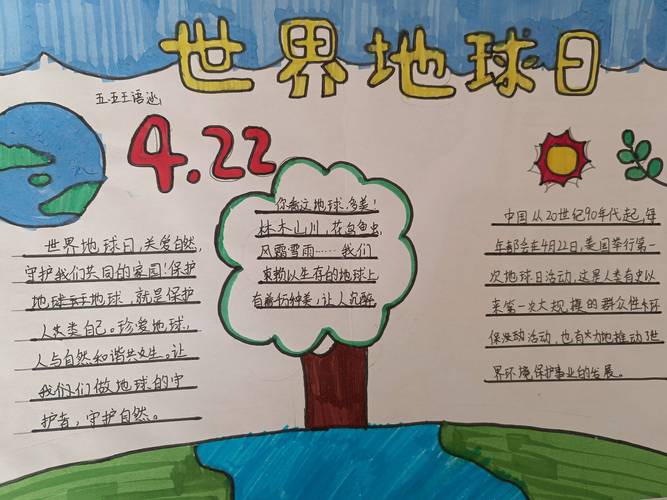 世界地球日
五.五王语涵
4.22
世界地球日,关爱自然,
守护我们共同的家园!保护
地球,就是保护
人类自己。珍爱地球,
人与自然和谐共生。让
我们们做地球的守
护者,守护自然。
你看这地球,多美!
林木山川,花鸟鱼虫,
风霜雪雨……我们
赖以生存的地球上,
有万种美,让人沉醉
中国从20世纪90年代起,每
年都会在4月22日,美国举行第一
次地球日活动,这是人类有史以
来第一次大规模的群众性环
保活动,也有力地推动了世
界环境保护事业的发展。